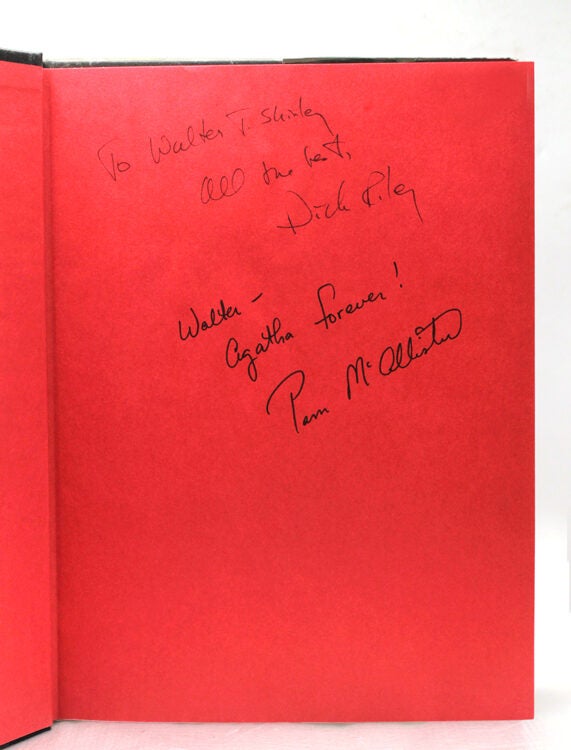 To Walter T. Shirley
All the best,
Dick Riley
Walter –
Agatha forever!
Pam McAllister